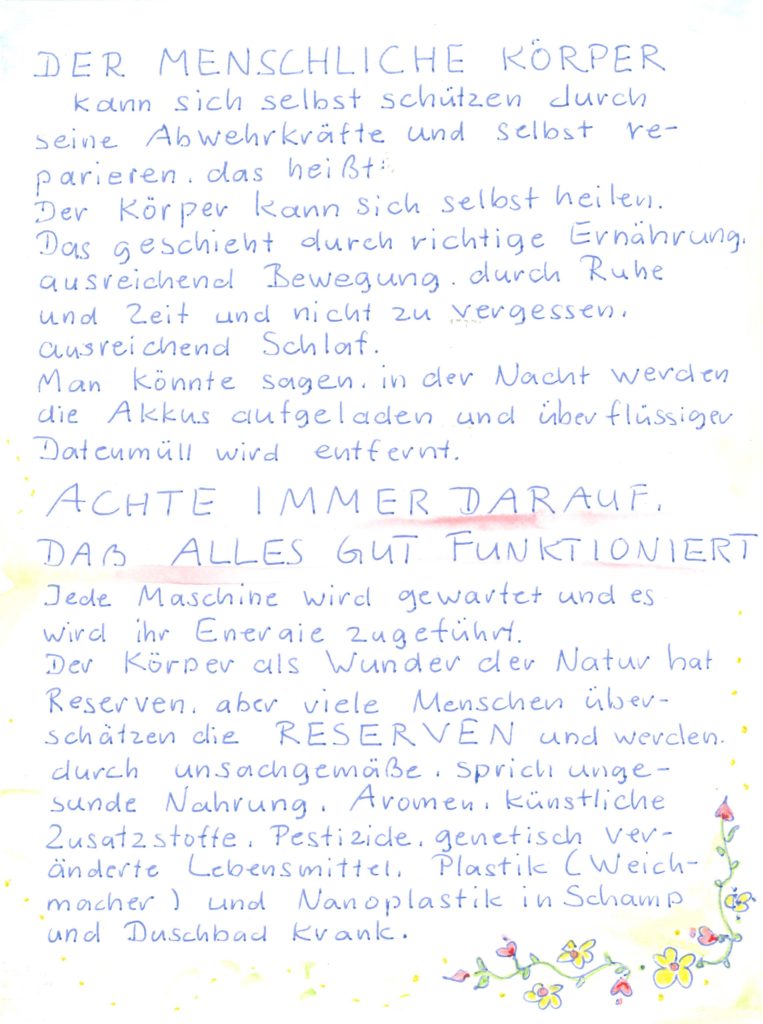 DER MENSCHLICHE KÖRPER
kann sich selbst schützen durch
seine Abwehrkräfte und selbst re-
parieren, das heißt:
Der Körper kann sich selbst heilen.
Das geschieht durch richtige Ernährung,
ausreichend Bewegung, durch Ruhe
und Zeit und nicht zu vergessen,
ausreichend Schlaf.
Man könnte sagen, in der Nacht werden
die Akkus aufgeladen und überflüssiger
Datenmüll wird entfernt.
ACHTE IMMER DARAUF,
DAß ALLES GUT FUNKTIONIERT
Jede Maschine wird gewartet und es
wird ihr Energie zugeführt.
Der Körper als Wunder der Natur hat
Reserven, aber viele Menschen über-
schätzen die RESERVEN und werden
durch unsachgemäße, sprich unge-
sunde Nahrung, Aromen, künstliche
Zusatzstoffe, Pestizide, genetisch ver-
änderte Lebensmittel, Plastik (Weich-
macher) und Nanoplastik in Schamp
und Duschbad krank.